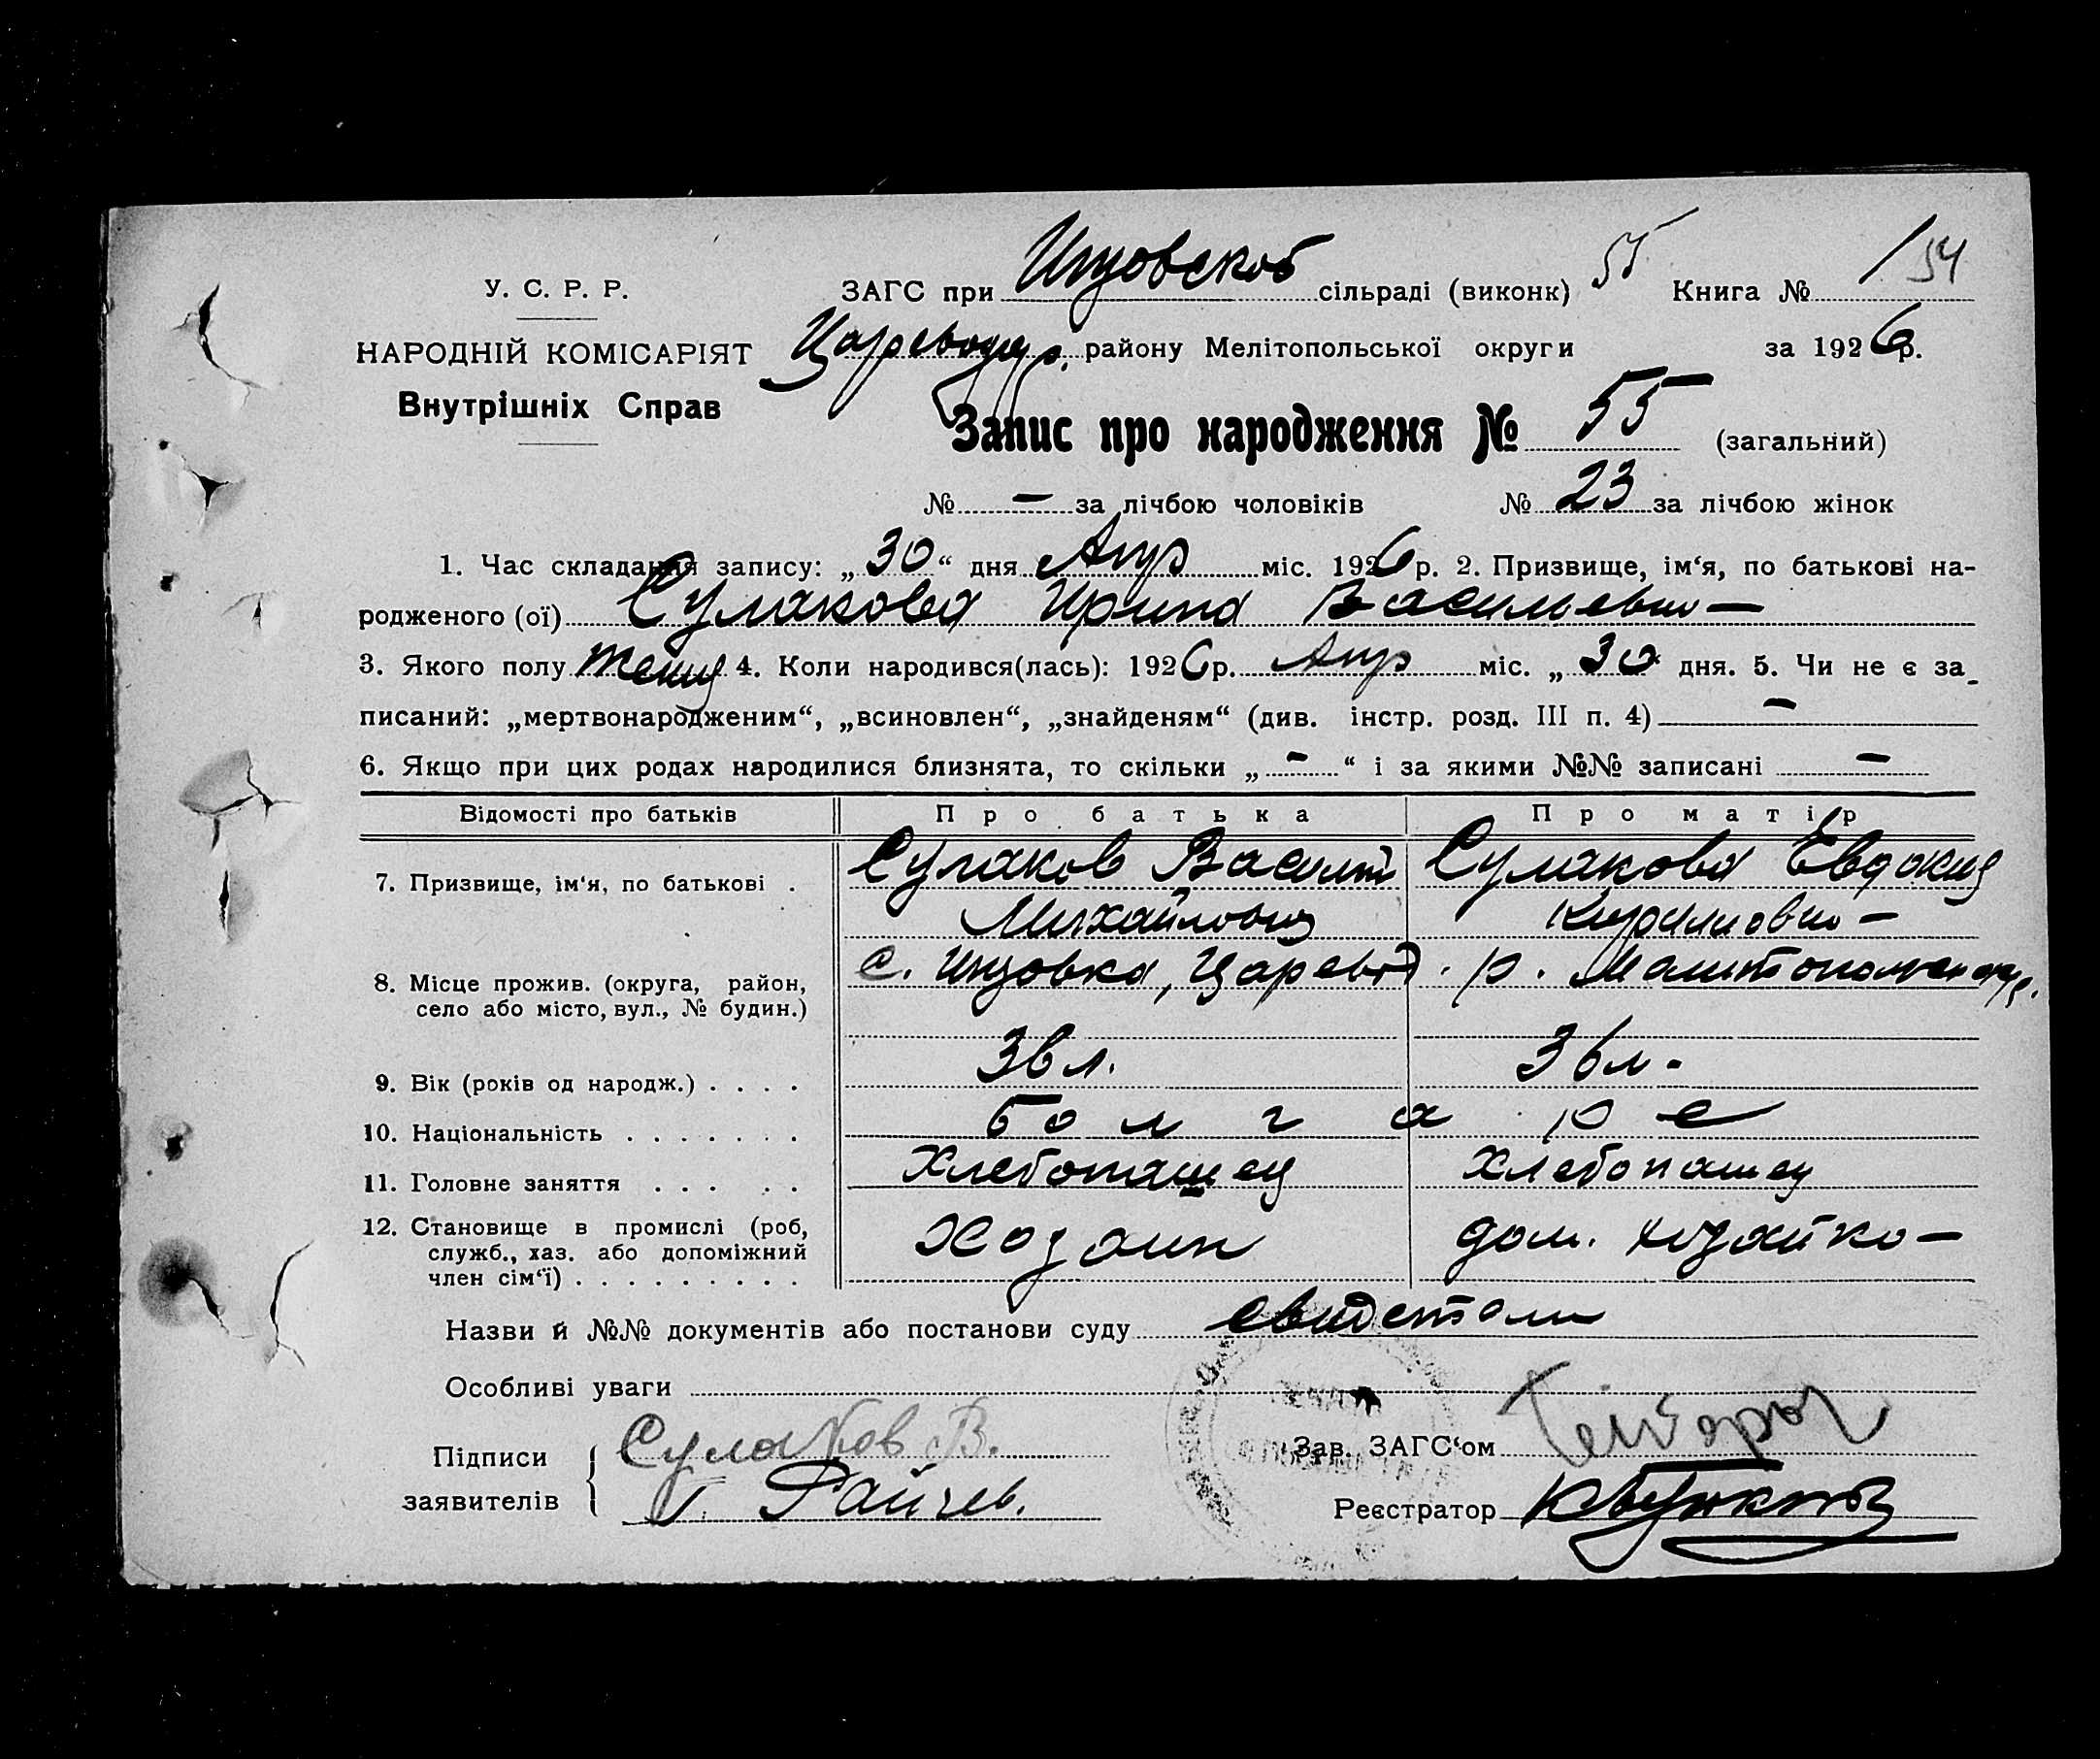 У. С. Р. Р.
НАРОДНІЙ КОМІСАРІЯТ
Внутрішніх Справ
ЗАГС при Инзовской сільраді (виконк) 55 Книга № 1 54
Царевод р. району Мелітопольської округи за 1926 р.
Запис про народження № 55 (загальний)
№ — за лічбою чоловіків № 23 за лічбою жінок
1. Час складання запису: „30“ дня Апр міс. 1926 р. 2. Призвище, ім‘я, по батькові на-
родженого (ої) Сулакова Ирина Васильевна
3. Якого полу женс 4. Коли народився(лась): 1926 р. Апр міс. „30 дня. 5. Чи не є за-
писаний: „мертвонародженим“, „всиновлен“, „знайденям“ (див. інстр. розд. III п. 4) —
6. Якщо при цих родах народилися близнята, то скільки „—“ і за якими №№ записані —
Відомості про батьків Про батька Про матір
7. Призвище, ім‘я, по батькові . Сулаков Василий Сулакова Евдокия
Михайлович Кириловна
8. Місце прожив. (округа, район, с. Инзовка, Царевод. р. Мелитопольск окр.
село або місто, вул., № будин.)
9. Вік (років од народж.) . . . . 36 л. 36 л.
10. Національність . . . . . . . болгаре
11. Головне заняття . . . . . Хлебопашец хлебопашец
12. Становище в промислі (роб, Хозаин дом. хозяйка
служб., хаз. або допоміжний
член сім‘ї) . . . . . . . . .
Назви й №№ документів або постанови суду свидетели
Особливі уваги
Підписи Сулаков В. Зав. ЗАГС‘ом
заявителів Г. Райчев. Реєстратор